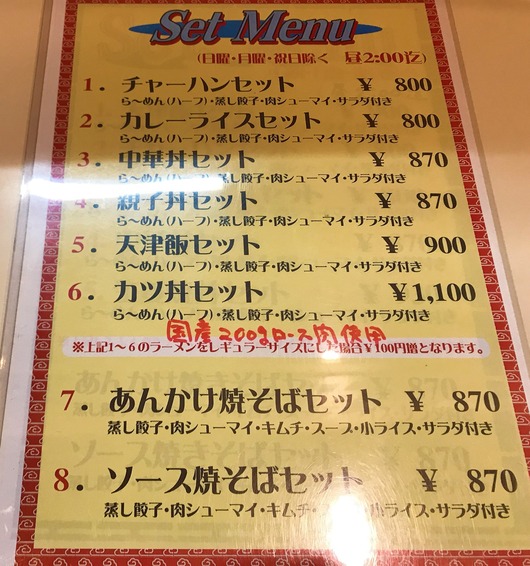 Set Menu
(日曜・月曜・祝日除く 昼2:00迄)
1. チャーハンセット ¥ 800
ら～めん(ハーフ)・蒸し餃子・肉シューマイ・サラダ付き
2. カレーライスセット ¥ 800
ら～めん(ハーフ)・蒸し餃子・肉シューマイ・サラダ付き
3. 中華丼セット ¥ 870
ら～めん(ハーフ)・蒸し餃子・肉シューマイ・サラダ付き
4. 親子丼セット ¥ 870
ら～めん(ハーフ)・蒸し餃子・肉シューマイ・サラダ付き
5. 天津飯セット ¥ 900
ら～めん(ハーフ)・蒸し餃子・肉シューマイ・サラダ付き
6. カツ丼セット ¥1,100
ら～めん(ハーフ)・蒸し餃子・肉シューマイ・サラダ付き
国産200gロース肉使用
※上記1～6のラーメンをレギュラーサイズにした場合¥100円増となります。
7. あんかけ焼そばセット ¥ 870
蒸し餃子・肉シューマイ・キムチ・スープ・小ライス・サラダ付き
8. ソース焼そばセット ¥ 870
蒸し餃子・肉シューマイ・キムチ・スープ・小ライス・サラダ付き